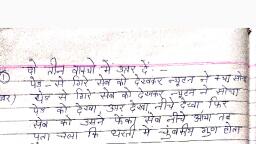 दो तीन वाक्यों में उत्तर दें: -
① पेड़ से गिरे सेब को देखकर न्यूटन ने क्या सोचा
पेड़ से गिरे सेब को देखकर न्यूटन ने सोचा
पेड़ को देखा ऊपर देखा नीचे देखा फिर
सेब को उसने फेंका सेब नीचे आया तब
पता चला कि धरती में चुंबकीय गुण होता